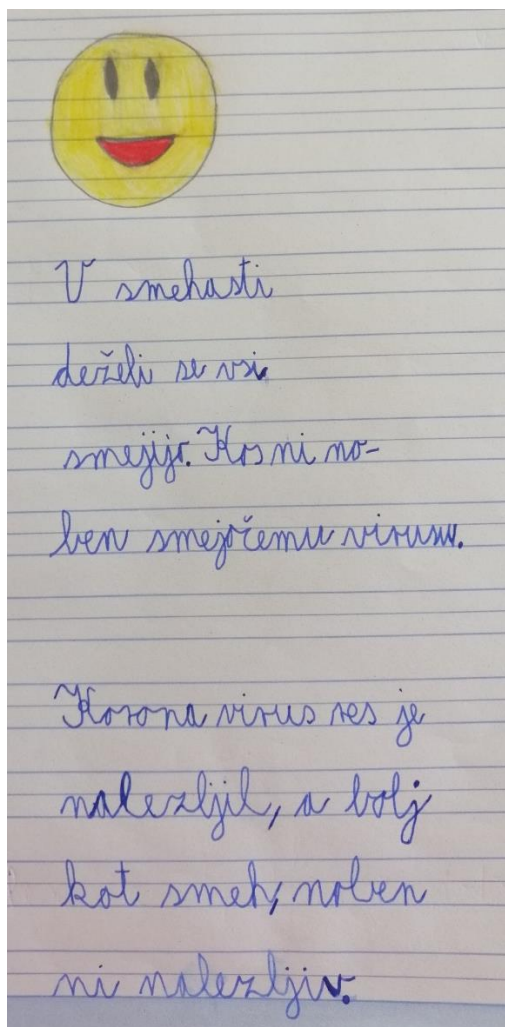 V smehasti
deželi se vsi
smejijo. Kos ni no-
ben smejočemu virusu.
Korona virus res je
nalezljil, a bolj
kot smeh, noben
ni nalezljiv.